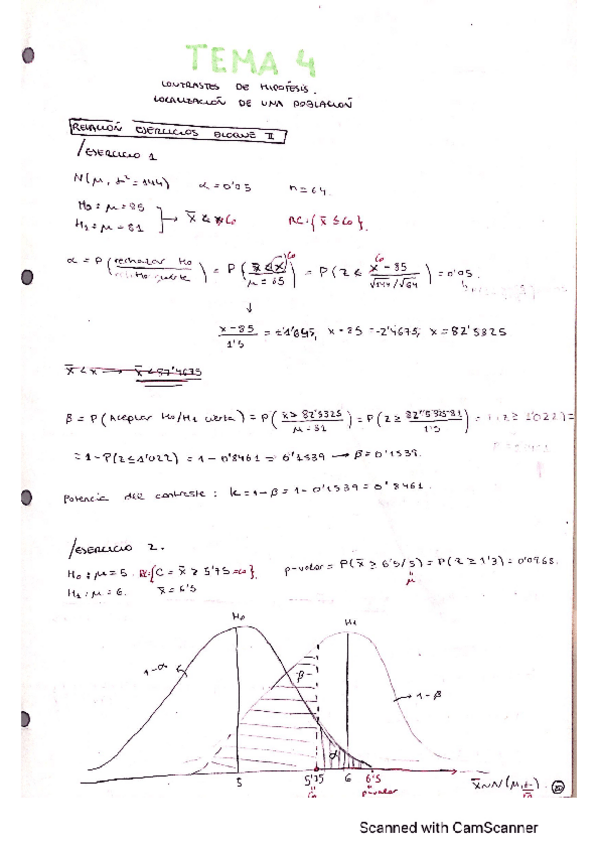 TEMA 4
CONTRASTES DE HIPÓTESIS.
LOCALIZACIÓN DE UNA POBLACIÓN
RELACIÓN EJERCICIOS BLOQUE II
/EJERCICIO 1
N(μ, σ²=144) α=0'05 n=64.
H₀: μ=85
H₁: μ=81 → x̄ < C₀ RC:{x̄ ≤ C₀}.
α = P(rechazar H₀ / H₀ cierta) = P(x̄ < C₀ / μ=85) = P(z < x-85 / √144/√64) = 0'05.
↓
x-85 / 1'5 = -1'645, x-85 = -2'4675; x = 82'5325
x̄ < x → x̄ < 87'4675
β = P(Aceptar H₀/H₁ cierta) = P(x̄ > 82'5325 / μ=81) = P(z ≥ 82'5325-81 / 1'5) = P(z ≥ 1'022) =
= 1 - P(z ≤ 1'022) = 1 - 0'8461 = 0'1539 → β = 0'1539.
Potencia del contraste: k = 1-β = 1 - 0'1539 = 0'8461.
/EJERCICIO 2.
H₀: μ=5. RC:{C = x̄ ≥ 5'75 = C₀}. p-valor = P(x̄ ≥ 6'5/5) = P(z ≥ 1'3) = 0'0968.
H₁: μ=6. x̄ = 6'5 μ
H₀ H₁
1-α β 1-β
α
5 5'75 6 6'5
C₀ p-valor
Scanned with CamScanner